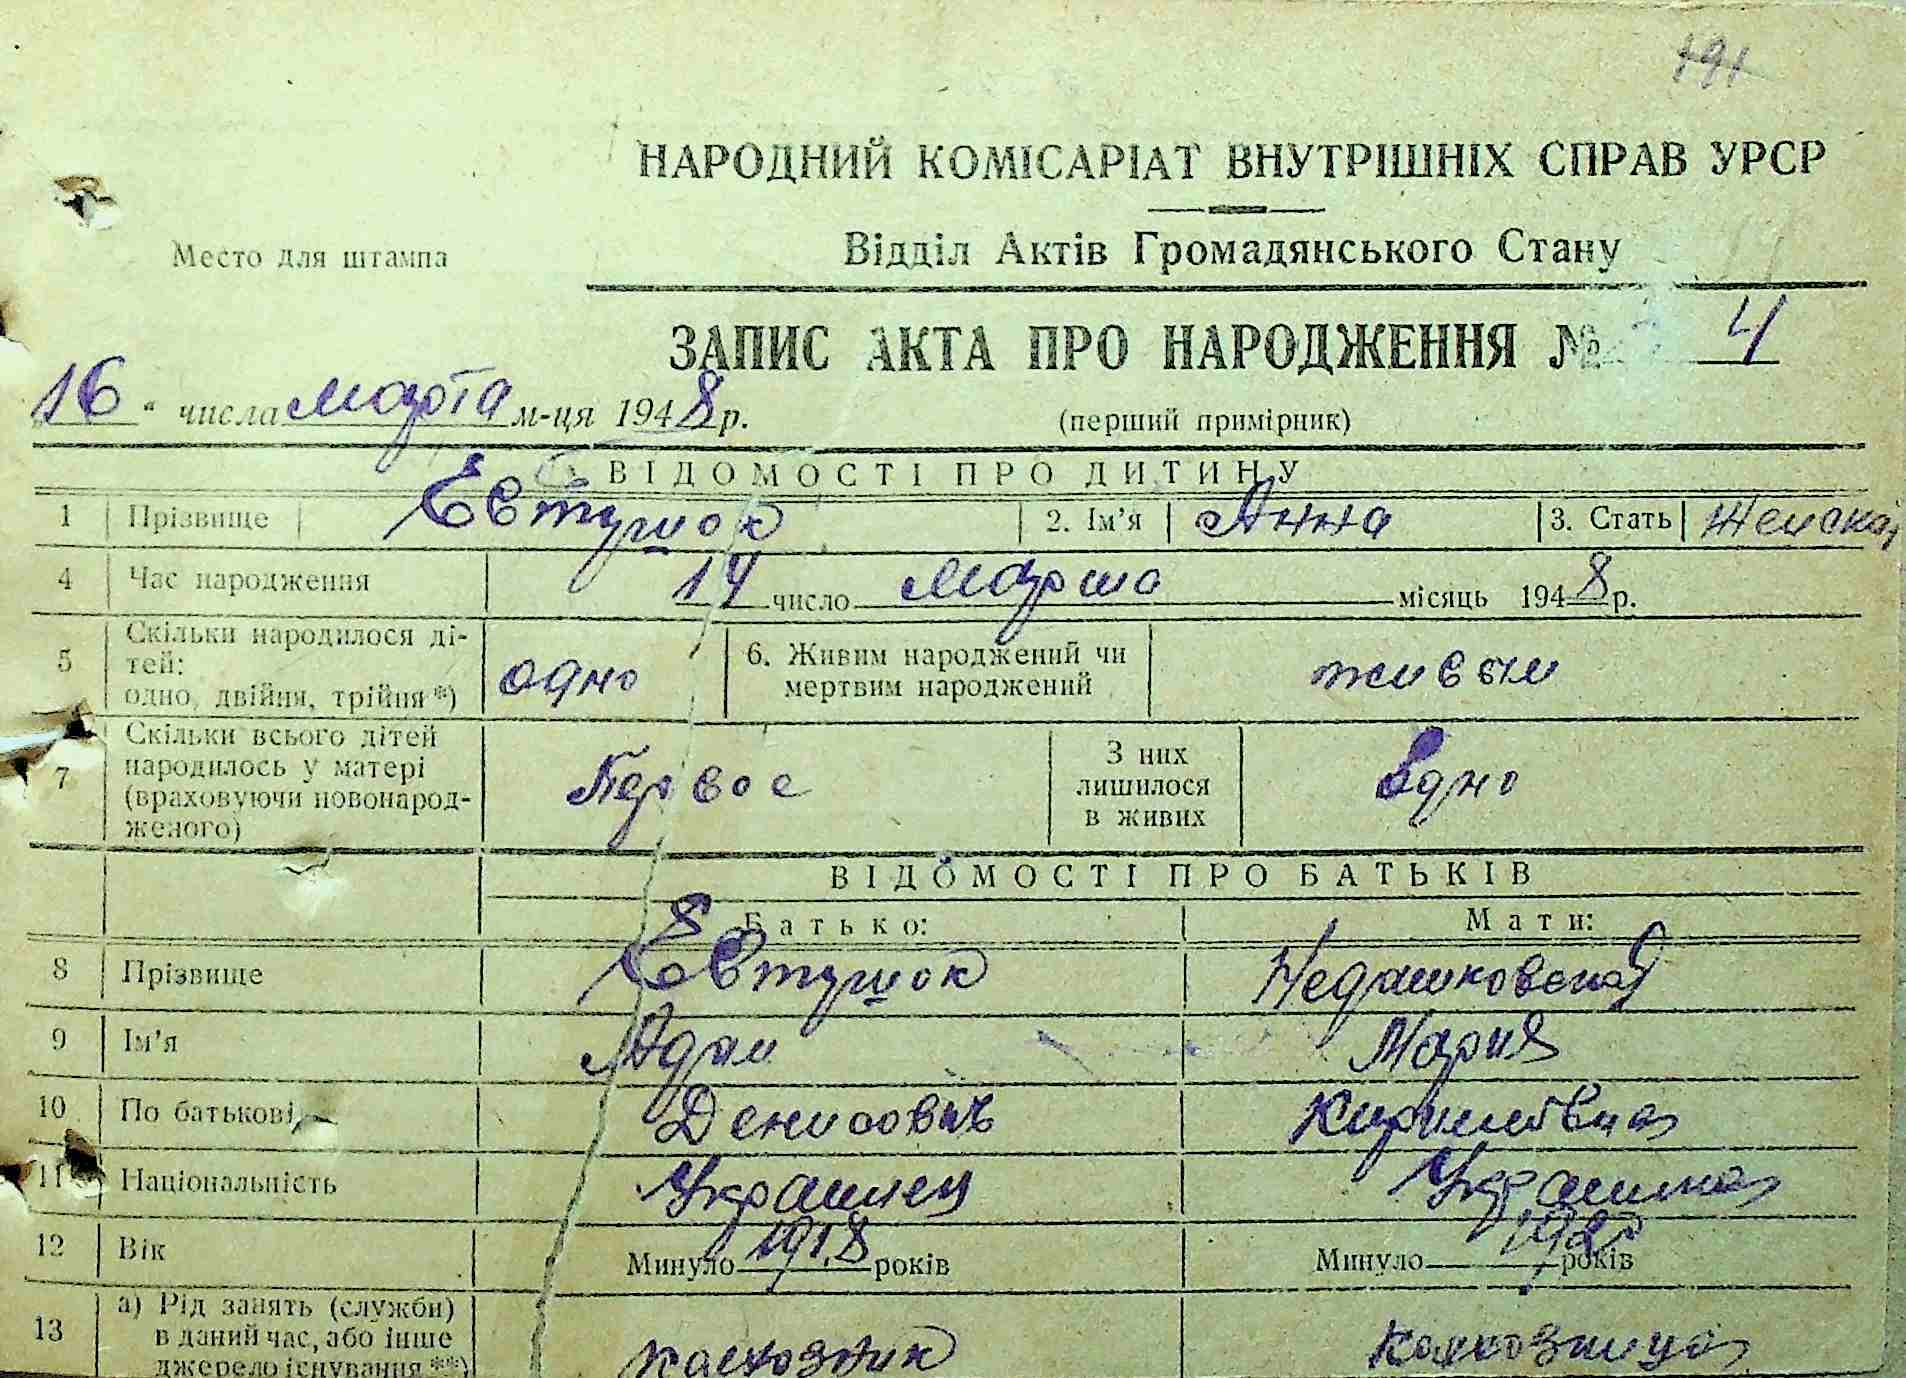 191
НАРОДНИЙ КОМІСАРІАТ ВНУТРІШНІХ СПРАВ УРСР
Место для штампа
Відділ Актів Громадянського Стану
ЗАПИС АКТА ПРО НАРОДЖЕННЯ № 4
16 " числа марта м-ця 1948 р.
(перший примірник)
ВІДОМОСТІ ПРО ДИТИНУ
1 Прізвище Евтушок 2. Ім'я Анна 3. Стать Женская
4 Час народження 14 число марта місяць 1948 р.
5 Скільки народилося ді-
тей:
одно, двійня, трійня *) одно 6. Живим народжений чи
мертвим народжений живым
7 Скільки всього дітей
народилось у матері
(враховуючи новонарод-
женого) Первое З них
лишилося
в живих одно
ВІДОМОСТІ ПРО БАТЬКІВ
Батько: Мати:
8 Прізвище Евтушок Недашковская
9 Ім'я Адам Мария
10 По батькові Денисович Кириловна
11 Національність Украинец Украинка
12 Вік Минуло 1918 років Минуло років
13 а) Рід занять (служби)
в даний час, або інше
джерело існування **) колхозник колхозница